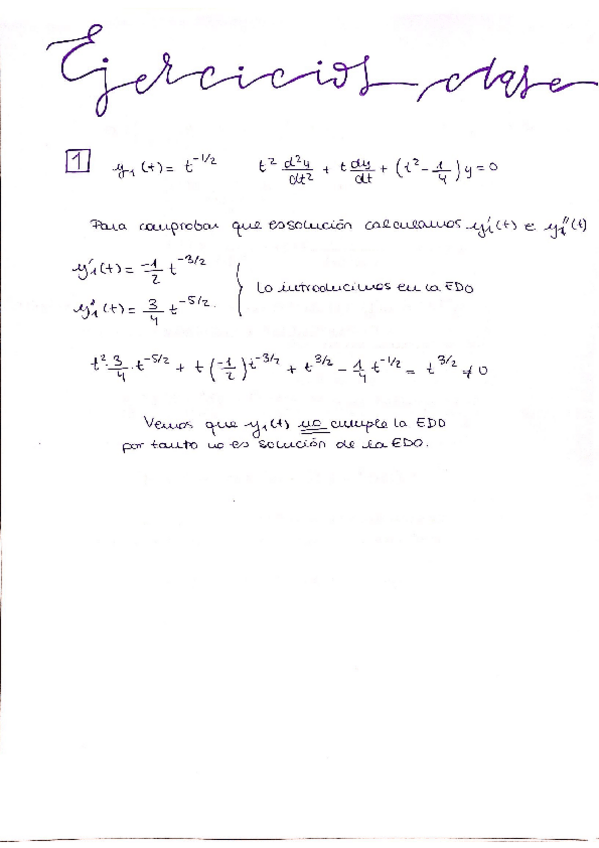 Ejercicios clase
1 y₁(t) = t^{-1/2} t² d²y/dt² + t dy/dt + (t² - 1/4) y = 0
Para comprobar que es solución calculamos y₁'(t) e y₁''(t)
y₁'(t) = -1/2 t^{-3/2}
y₁''(t) = 3/4 t^{-5/2}. } lo introducimos en la EDO
t² · 3/4 · t^{-5/2} + t (-1/2) t^{-3/2} + t^{3/2} - 1/4 t^{-1/2} = t^{3/2} ≠ 0
Vemos que y₁(t) no cumple la EDO
por tanto no es solución de la EDO.